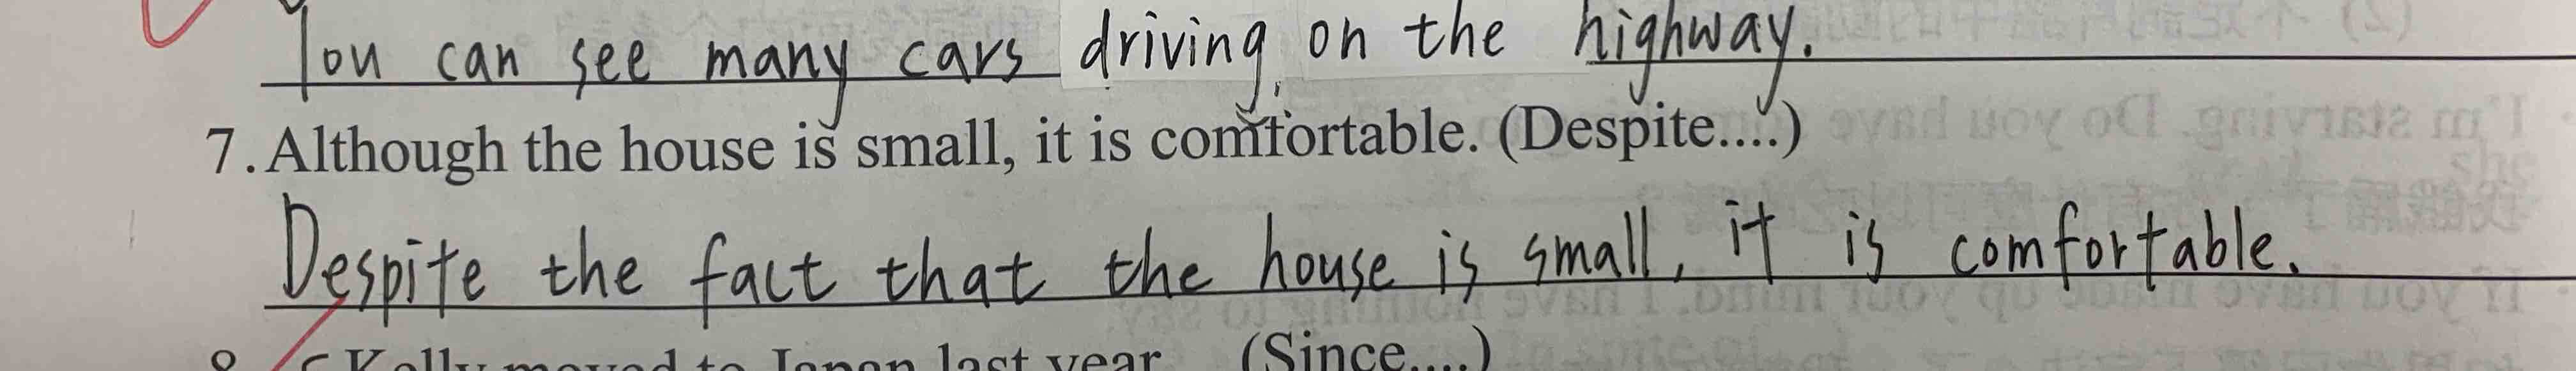 You can see many cars driving on the highway.
7. Although the house is small, it is comfortable. (Despite....)
Despite the fact that the house is small, it is comfortable.
8. Kelly moved to Japan last year. (Since....)